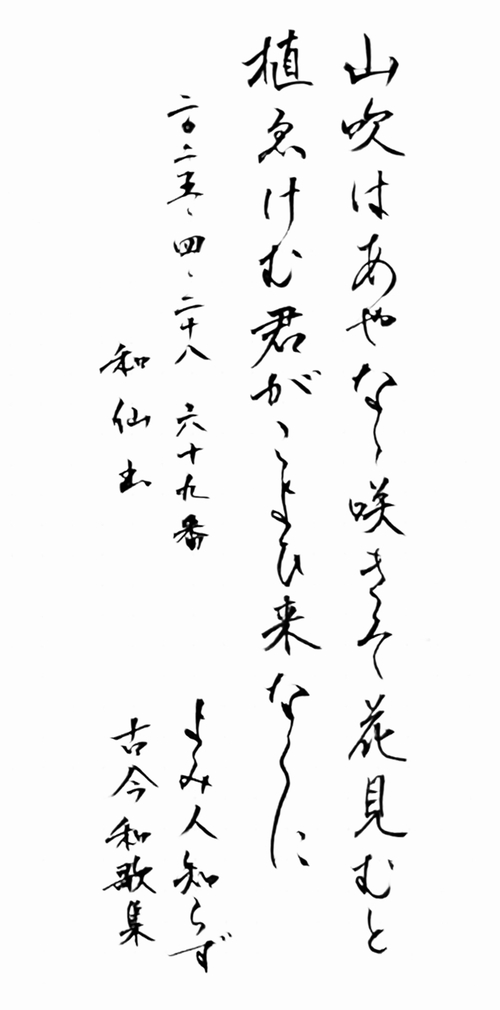 山吹はあやなゝ咲きそ花見むと
植ゑけむ君がこよひ来なくに
よみ人知らず
古今和歌集
二〇二五、四、二十八 六十九番
和仙書